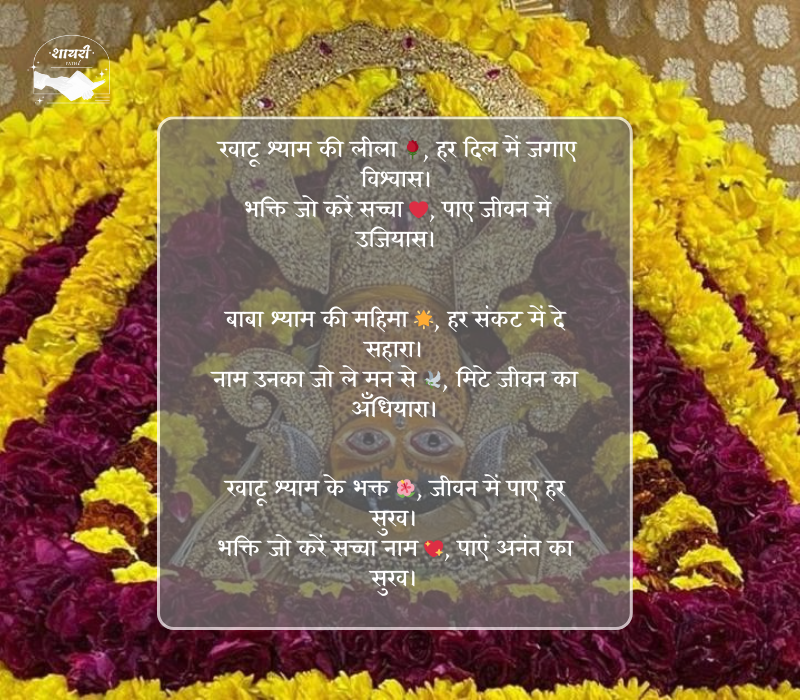 शायरी
खाटू श्याम की लीला 🌹, हर दिल में जगाए
विश्वास।
भक्ति जो करें सच्चा ❤️, पाए जीवन में
उजियास।
बाबा श्याम की महिमा 🌟, हर संकट में दे
सहारा।
नाम उनका जो ले मन से 🕊️, मिटे जीवन का
अँधियारा।
खाटू श्याम के भक्त 🌺, जीवन में पाए हर
सुख।
भक्ति जो करें सच्चा नाम 💖, पाएं अनंत का
सुख।